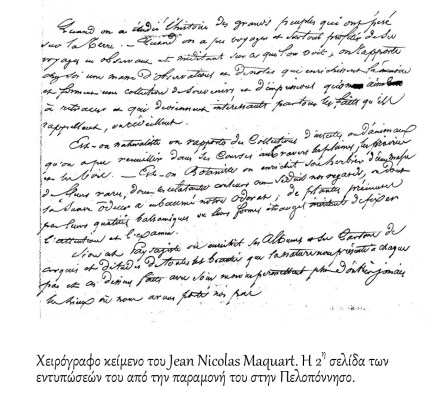 Quand on a étudié l'histoire des grands peuples qui ont pesé
sur la Terre. – Quand on a pu voyager et surtout profiter de ses
voyages en observant et méditant sur ce que l'on voit; on rapporte
chez soi une masse d'observations et de notes qui enrichissent la mémoire
et forment une collection de souvenirs et d'impressions
à retracer et qui deviennent intéressants par tous les faits qu'ils
rappellent, ou réveillent.
Est-on naturaliste on rapporte des Collections d'insectes ou d'animaux
qu'on a pu recueillir dans ses Courses au travers les plaines, les
et les bois. – Est-on Botaniste on enrichit son herbier
de fleurs rares, dont les éclatantes couleurs ont séduit nos regards,
suave odeur a embaumé notre odorat; de plantes précieuses
par leurs qualités balsamiques ou leurs formes étranges
l'attention et l'examen.
Paysagiste on enrichit ses Albums et ses Cartons de
croquis et d'études de toutes les beautés que la nature nous présente à chaque
pas et ces dessins faits avec soin nous permettent jamais
les lieux où nous avons porté nos pas
Χειρόγραφο κείμενο του Jean Nicolas Maquart. Η 2η σελίδα των
εντυπώσεών του από την παραμονή του στην Πελοπόννησο.